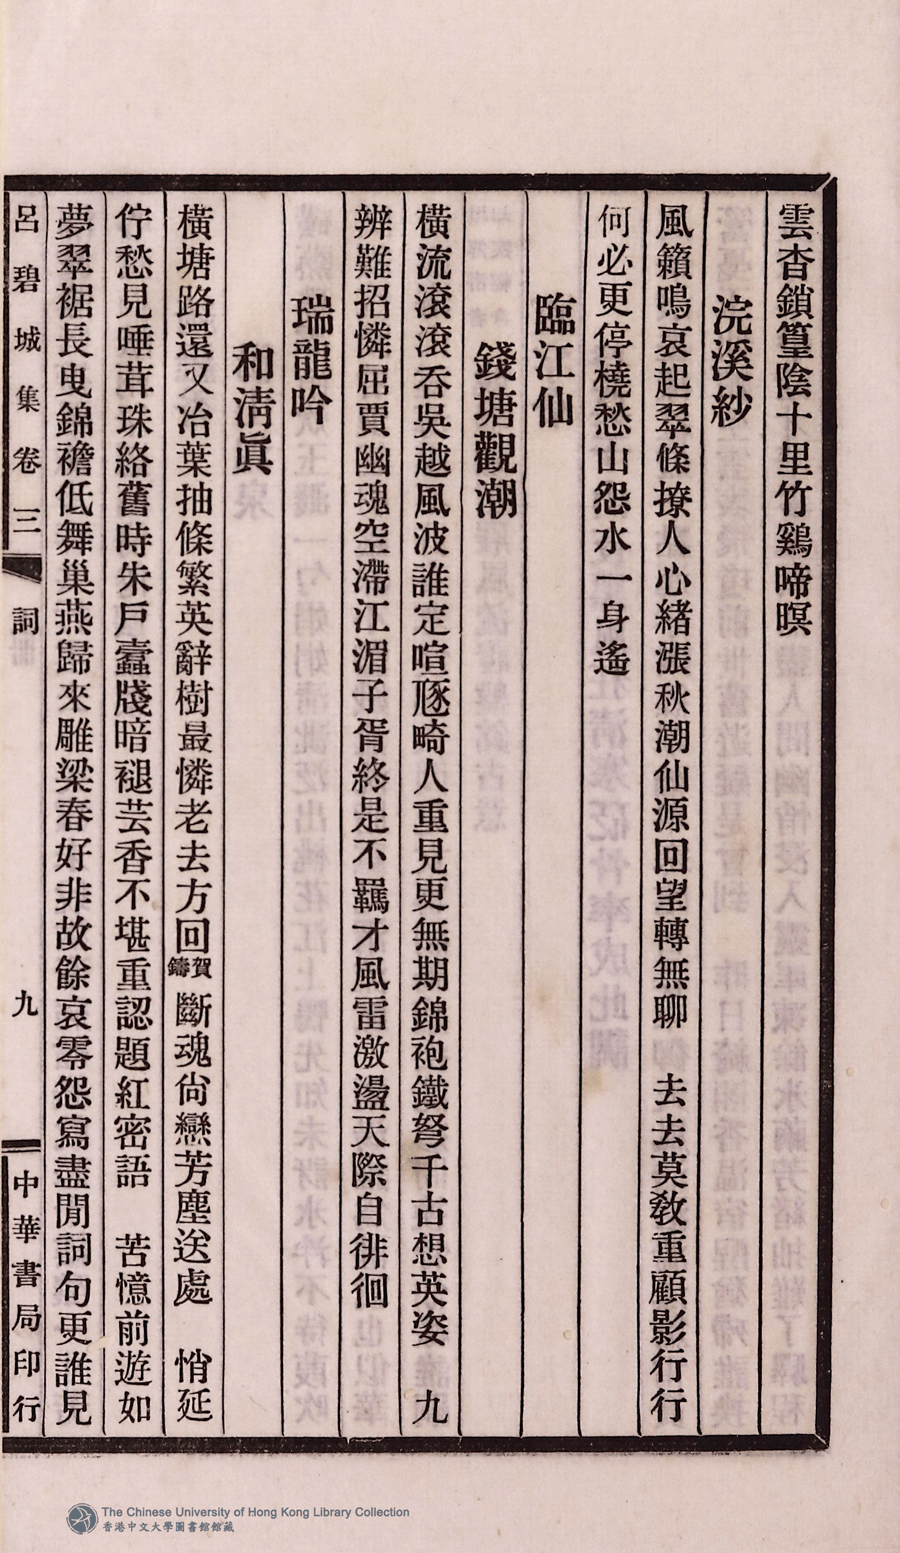 雲杳鎖篁陰十里竹鷄啼暝
浣溪紗
風籟鳴哀起翠條撩人心緒漲秋潮仙源回望轉無聊　去去莫敎重顧影行行
何必更停橈愁山怨水一身遙
臨江仙
錢塘觀潮
橫流滾滾呑吳越風波誰定喧豗畸人重見更無期錦袍鐵弩千古想英姿　九
辨難招憐屈賈幽魂空滯江湄子胥終是不羈才風雷激盪天際自徘徊
瑞龍吟
和淸眞
橫塘路還又冶葉抽條繁英辭樹最憐老去方回賀鑄斷魂尙戀芳塵送處　悄延
佇愁見唾茸珠絡舊時朱戶蠧牋暗褪芸香不堪重認題紅密語　苦憶前遊如
夢翠裾長曳錦襜低舞巢燕歸來雕梁春好非故餘哀零怨寫盡閒詞句更誰見
呂碧城集卷三　詞　九　中華書局印行
The Chinese University of Hong Kong Library Collection
香港中文大學圖書館館藏